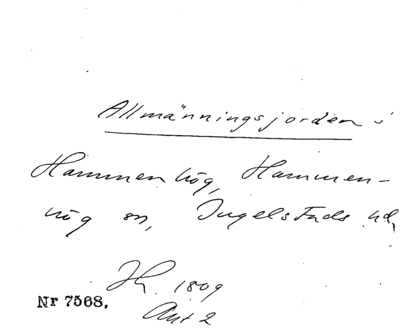 Allmänningsjorden i
Hammenhög, Hammen-
hög sn, Ingelstads hd,
1809
Nr 7568.
Akt 2